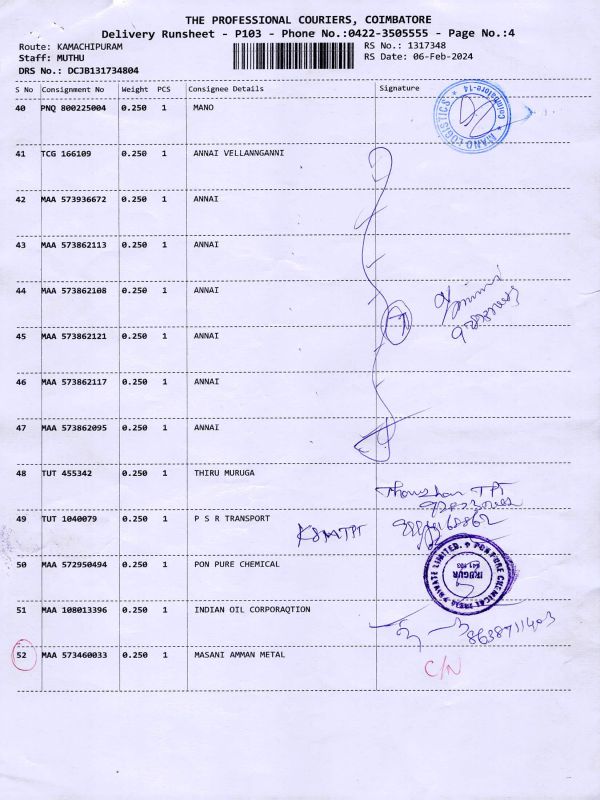 THE PROFESSIONAL COURIERS, COIMBATORE
Delivery Runsheet - P103 - Phone No.:0422-3505555 - Page No.:4
Route: KAMACHIPURAM RS No.: 1317348
Staff: MUTHU RS Date: 06-Feb-2024
DRS No.: DCJB131734804
S No Consignment No Weight PCS Consignee Details Signature
40 PNQ 800225004 0.250 1 MANO
MANO LOGISTICS * Coimbatore-14 *
41 TCG 166109 0.250 1 ANNAI VELLANNGANNI
42 MAA 573936672 0.250 1 ANNAI
43 MAA 573862113 0.250 1 ANNAI
44 MAA 573862108 0.250 1 ANNAI
45 MAA 573862121 0.250 1 ANNAI
46 MAA 573862117 0.250 1 ANNAI
47 MAA 573862095 0.250 1 ANNAI
48 TUT 455342 0.250 1 THIRU MURUGA
TPT
49 TUT 1040079 0.250 1 P S R TRANSPORT
KSM TPT
50 MAA 572950494 0.250 1 PON PURE CHEMICAL
PON PURE CHEMICAL INDIA PRIVATE LIMITED.
IRUGUR
641 103
51 MAA 108013396 0.250 1 INDIAN OIL CORPORAQTION
8638711403
52 MAA 573460033 0.250 1 MASANI AMMAN METAL
C/N